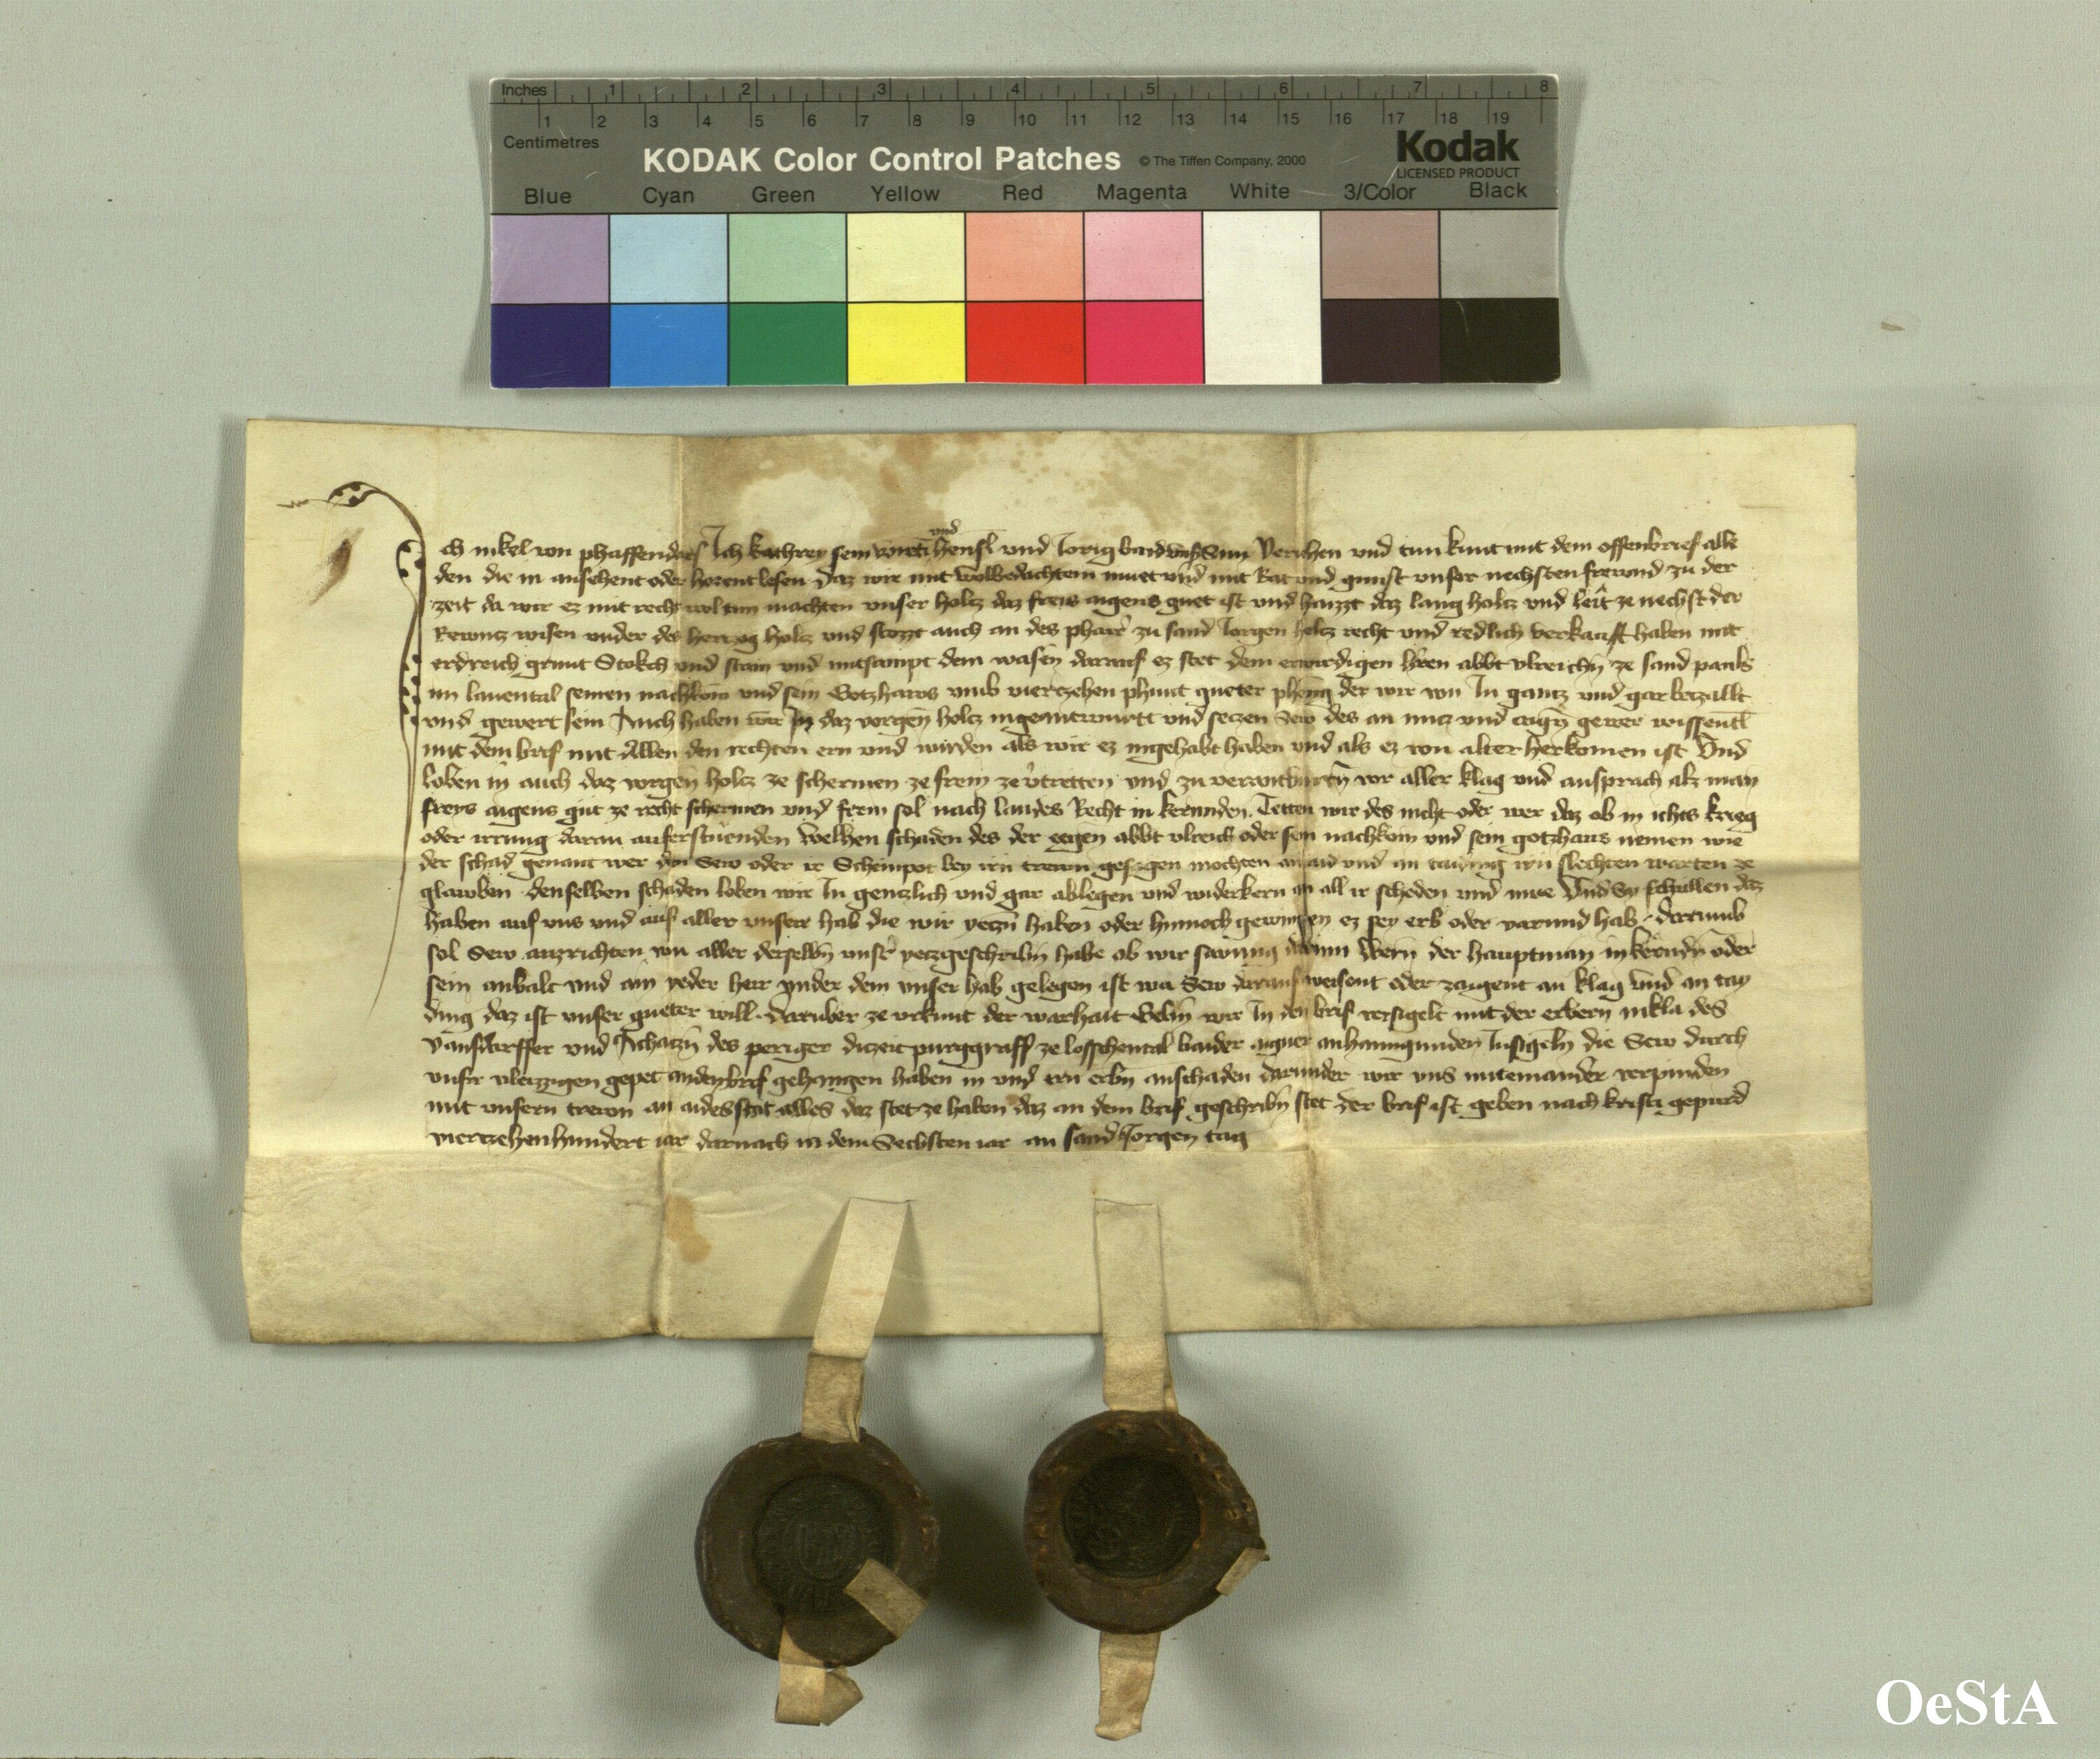 Inches 1 2 3 4 5 6 7 8
1 2 3 4 5 6 7 8 9 10 11 12 13 14 15 16 17 18 19
Centimetres
KODAK Color Control Patches © The Tiffen Company, 2000 Kodak
LICENSED PRODUCT
Blue Cyan Green Yellow Red Magenta White 3/Color Black
und
Ich nikel von phaffendorf Ich kathrey sein wirtī Hensl und Jorig baid unser Sun Veriehen und tun kunt mit dem offenbrief alle
den die in ansehent oder horent lesen daz wir mit wolbedachtem muet und mit Rat und gunst unser nechsten frewnd zu der
zeit da wir ez mit recht wol tun machten unser holcz daz freis aigens guet ist und haizzt daz lang holcz und leit ze nechst der
wisen under des herczog holcz und stozzt auch an des pharr zu sand Jorgen holcz recht und redlich verkauft haben mit
erdreich grunt Stokch und stain und mitsampt dem wasen darauf ez stet dem erwirdigen hren abbt ulreichn ze sand pauls
im lauental seinen nachkom und sein Gotzhaws umb vierczehen phunt gueter phenng der wir vin In gancz und gar beczallt
und gewert sein Auch haben wir In daz vorgen holcz ingeantwurtt und seczen Sew des an nucz und aign gewer wissentl
mit dem brif mit Allen den rechten ern und wirden als wir ez ingehabt haben und als ez von alter herkomen ist Und
loben in auch daz vorgen holcz ze schermen ze frein ze vtretten und zu verantburtn vor aller klag und ansprach alz man
freys aigens gut ze recht schermen und frein sol nach landes Recht in kernnden. Tetten wir des nicht oder wer daz ob in ichts krieg
oder irrung daran auferstuenden Welhen schaden des der egen abbt ulreich oder sein nachkom und sein gotzhaus nemen wie
der schad genant wer den Sew oder ir Scheinpot bey irn trewn gesagen mochten an aid und an taiding irn slechten warten ze
glauben denselben schaden loben wir In genczlich und gar ablegen und widerkern an all ir scheden und mue Und Sy schullen daz
haben auf uns und auf aller unserr hab die wir yeczn haben oder hinnoch gewingen ez sey erb oder varund hab darumb
sol Sew auzrichten von aller derselbn unsr yeczgeschribn habe ob wir sawmig darinn Wern der hauptman in kerndn oder
sein anbalt und ain yeder herr under dem unser hab gelegen ist wa Sew darauf weisent oder zaigent an klag und an tay
ding daz ist unser gueter will. Daruber ze urkunt der warhait Gebn wir In den brif versigelt mit der erbern nikla des
vansdorffer und Achaczn des periger diczeit purggraff ze losschental baider aigner anhanngunden Insigeln die Sew durch
unsr vleizzigen gepet an den brif gehangen haben in und irn erbn anschaden darunder wir uns miteinander verpinden
mit unsern trewn an aides stat alles daz stet ze haben daz an dem brif geschribn stet Der brif ist geben nach kristi gepurd
vierczehenhundert iar darnach in dem Sechsten iar an sand Jorgen tag
OeStA